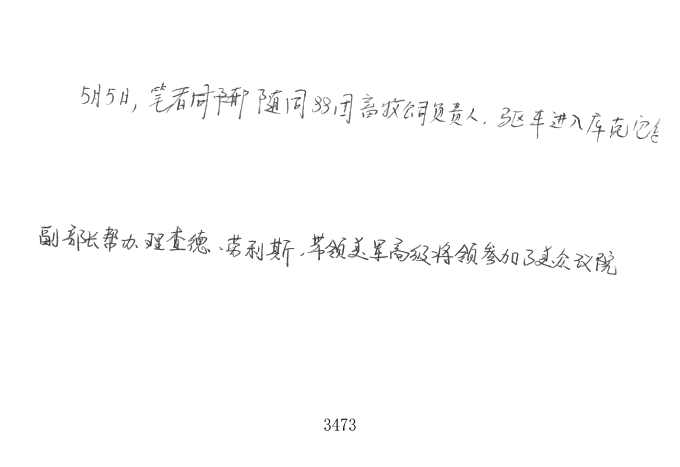 5月5日,笔者同邢随同33团畜牧公司负责人,驱车进入库克
副部长帮办理查德、劳利斯,带领美军高级将领参加了美众议院
3473